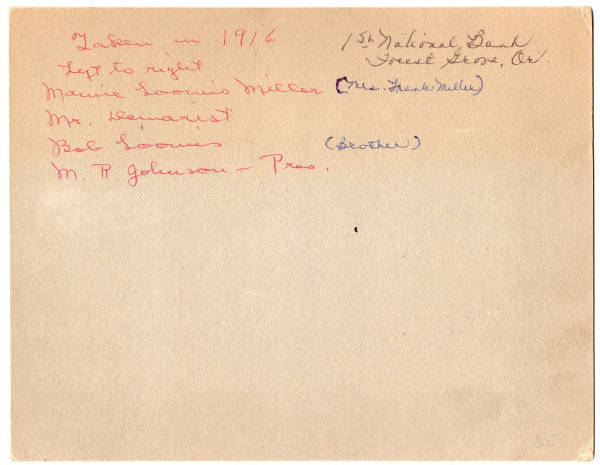 Taken in 1916
1st National Bank
Forest Grove, Or.
Left to right
Mamie Loomis Miller (Mrs. Frank Miller)
Mr. Demarist
Bob Loomis (Brother)
M. R Johnson - Pres.